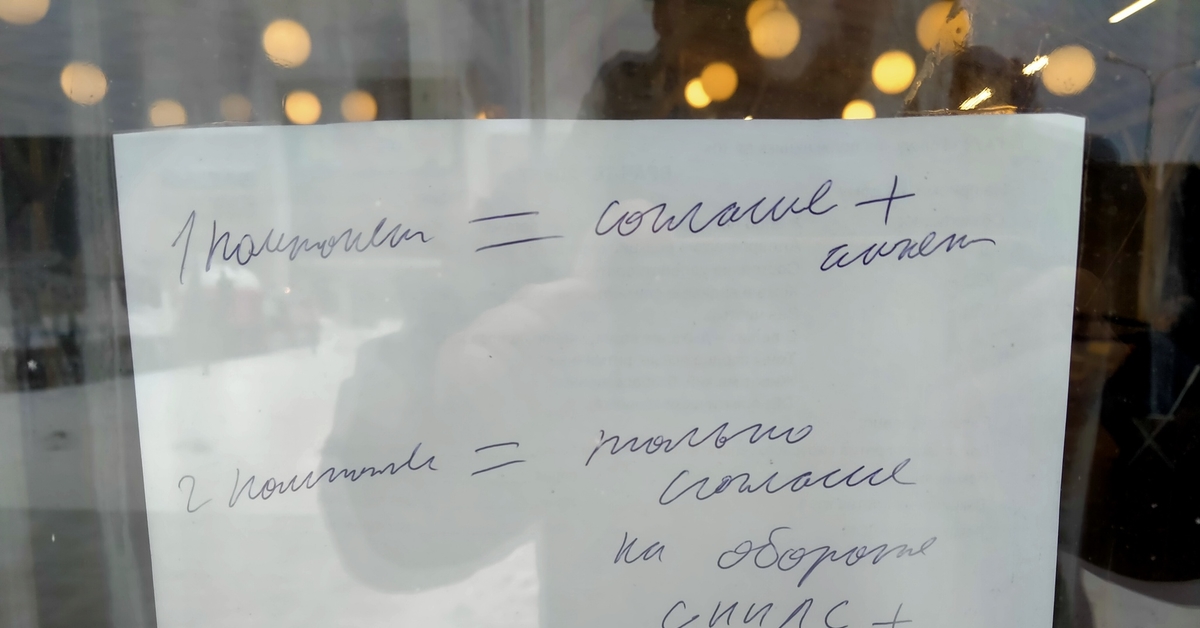 1 компонент = согласие +
анкета
2 компонент = только
согласие
на обороте
СНИЛС +